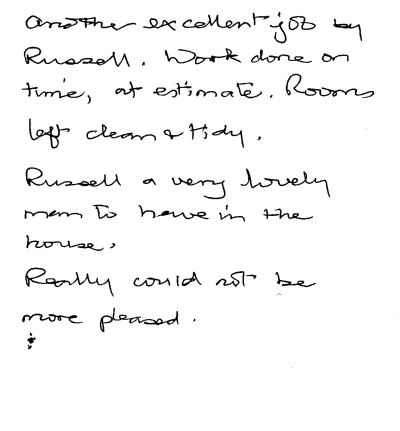 another excellent job by
Russell. Work done on
time, at estimate. Rooms
left clean & tidy.
Russell a very lovely
man to have in the
house.
Really could not be
more pleased.